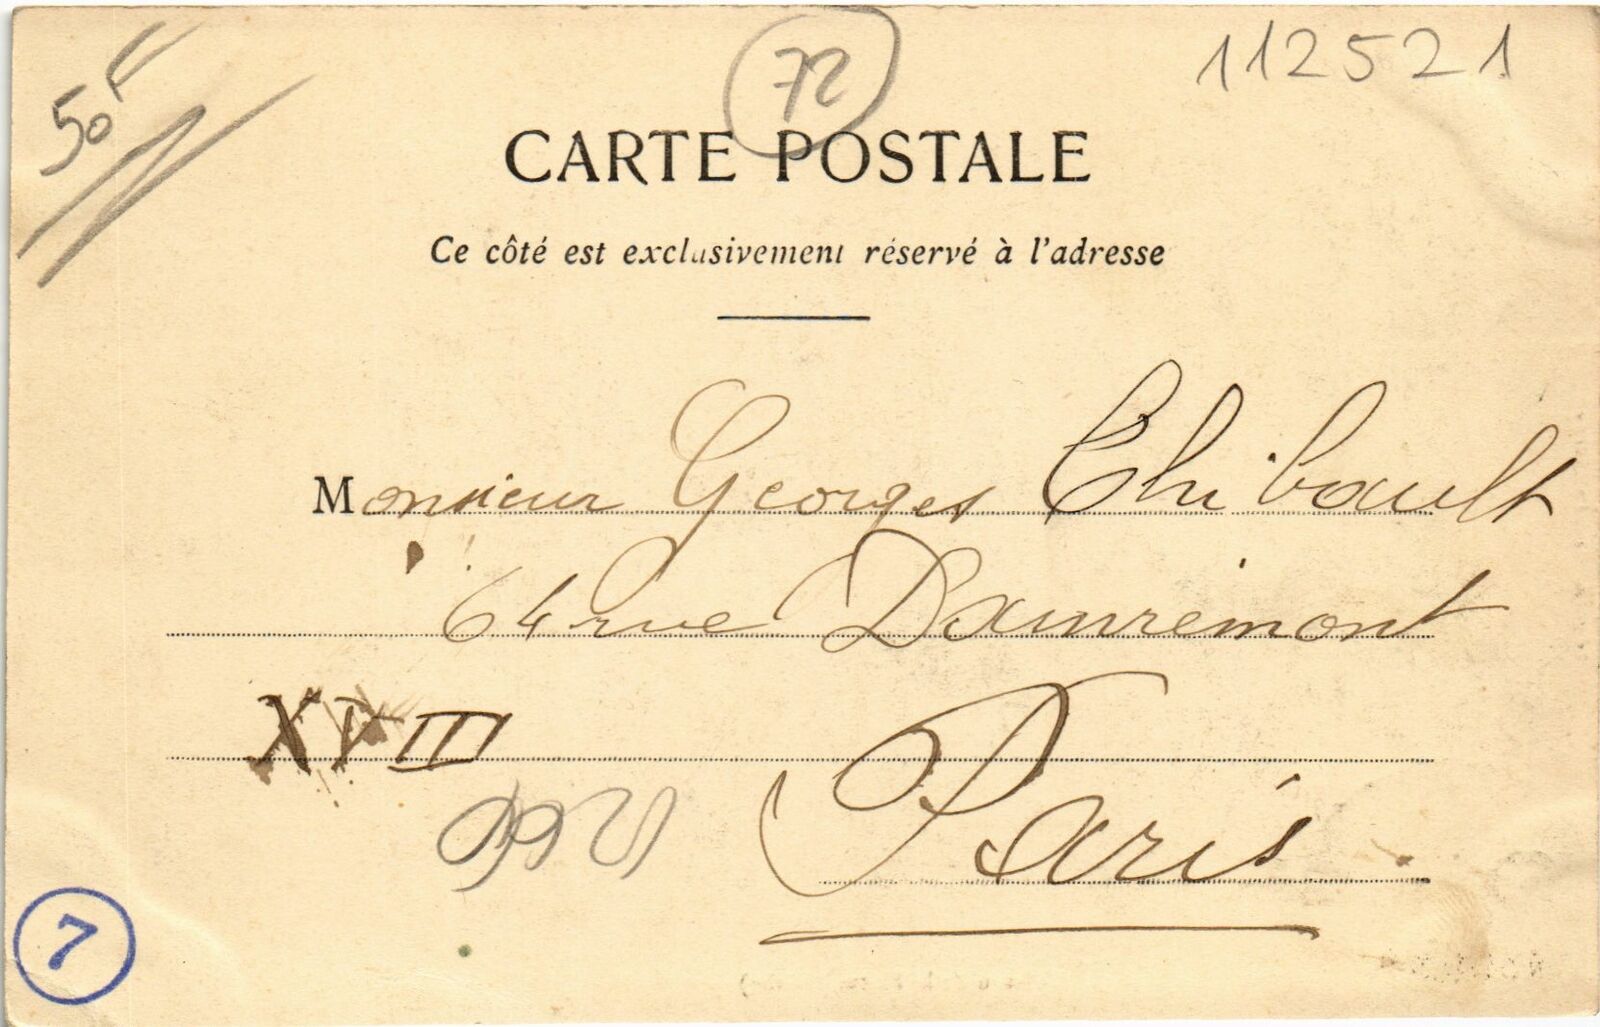 50F
72
112521
CARTE POSTALE
Ce côté est exclusivement réservé à l'adresse
Monsieur Georges Thibault
64 rue Damrémont
XVIII
Paris
7